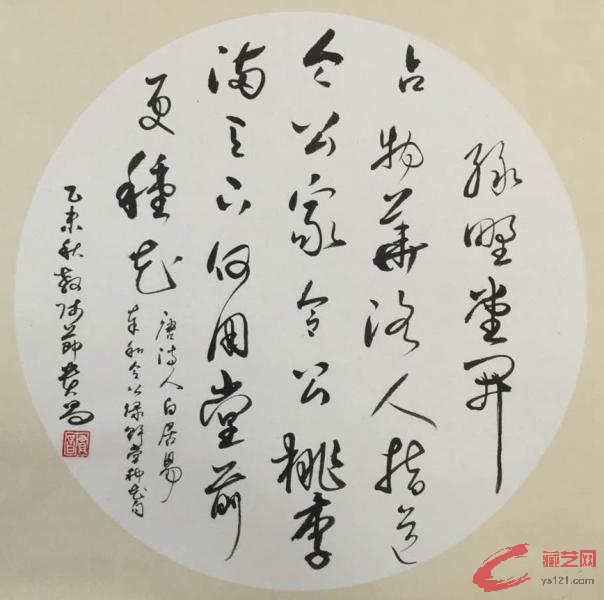 绿野堂开
占物华洛人指道
令公家令公桃李
满天下何用堂前
更種花
唐诗人白居易
奉和令公绿野堂种花句
乙未秋教师节贵昌
藏艺网
ys121.com